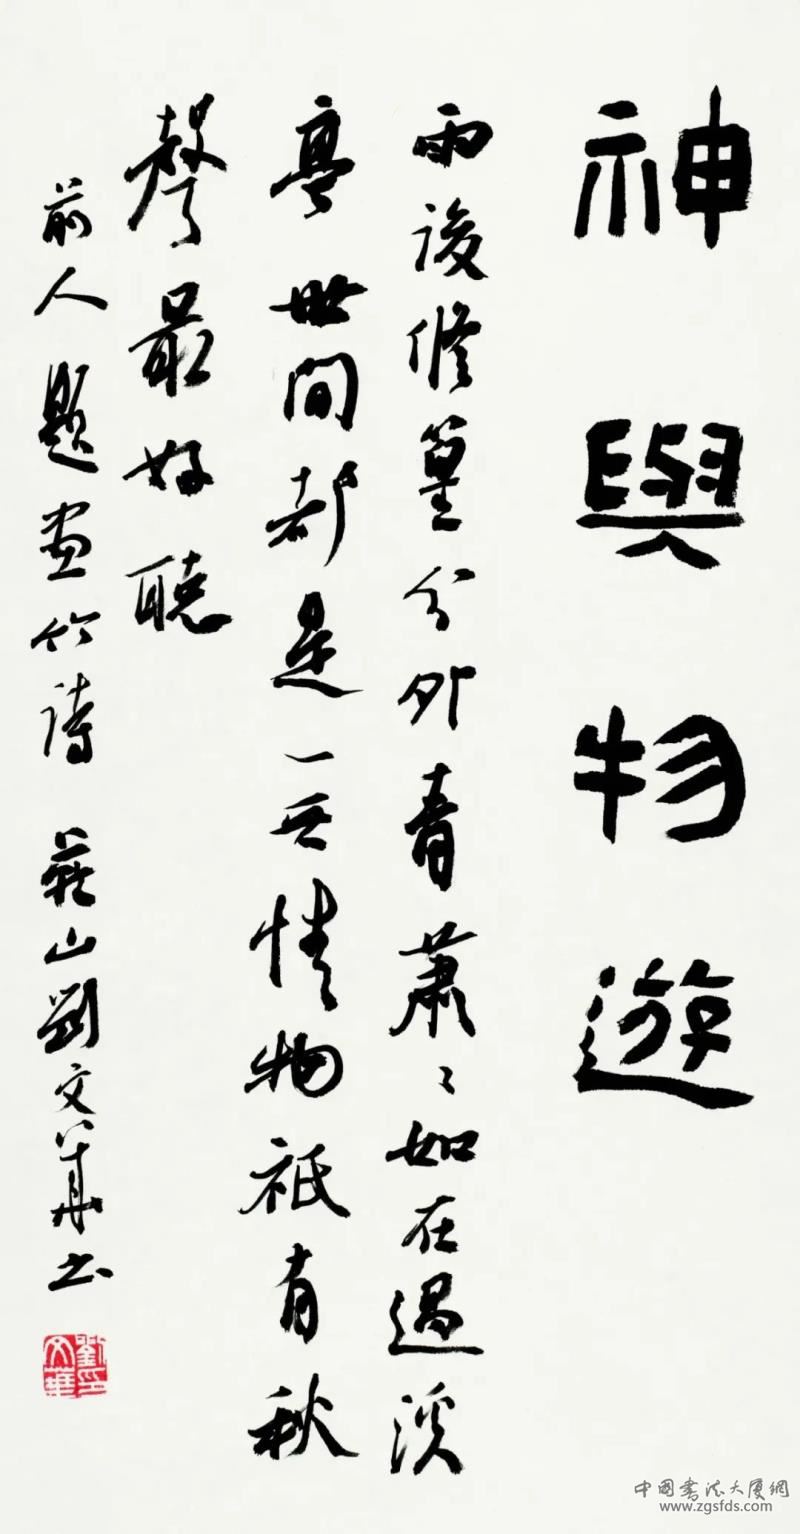 神與物遊
雨後修篁分外青蕭〻如在過溪
亭世間都是無情物祇有秋
聲最好聽
前人題畫竹詩 山劉文華書
劉印文華
中國書法大廈網
www.zgsfds.com